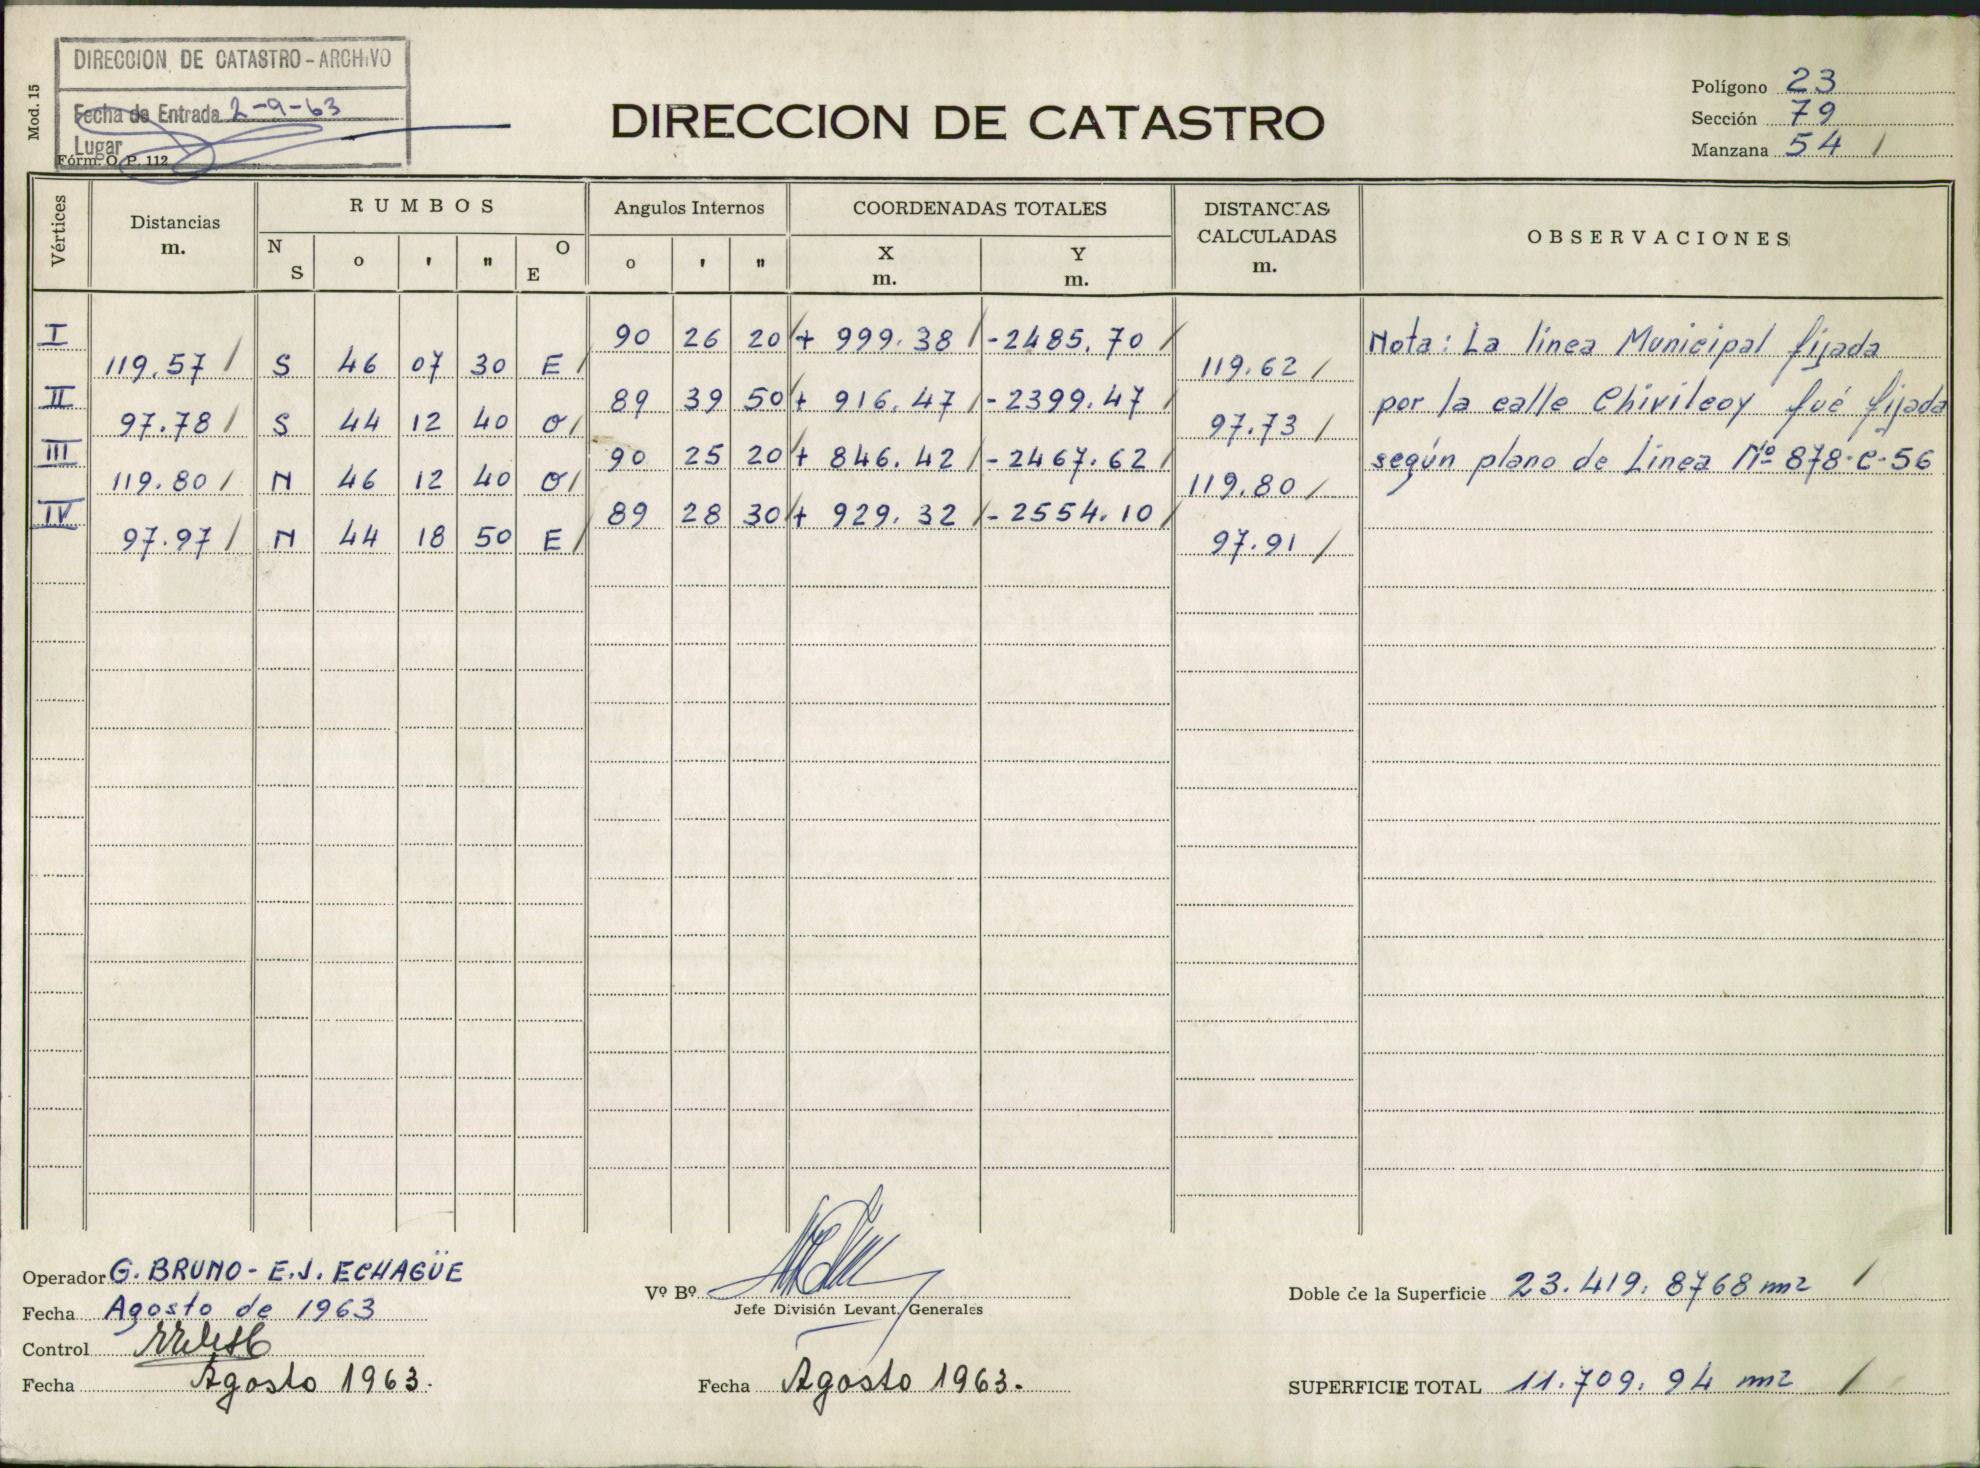 DIRECCION DE CATASTRO - ARCHIVO
Fecha de Entrada 2-9-63
Lugar
Mod. 15
Fórm. O. P. 112
DIRECCION DE CATASTRO
Polígono 23
Sección 79
Manzana 54 /
Vértices
Distancias
m.
RUMBOS
N
S
o
'
"
O
E
Angulos Internos
o
'
"
COORDENADAS TOTALES
X
m.
Y
m.
DISTANCIAS
CALCULADAS
m.
OBSERVACIONES
I 90 26 20 + 999.38 / -2485.70 /
119.57 / S 46 07 30 E / 119.62 /
II 89 39 50 + 916.47 / -2399.47 /
97.78 / S 44 12 40 O / 97.73 /
III 90 25 20 + 846.42 / -2467.62 /
119.80 / N 46 12 40 O / 119.80 /
IV 89 28 30 + 929.32 / -2554.10 /
97.97 / N 44 18 50 E / 97.91 /
Nota: La linea Municipal fijada
por la calle Chivilcoy fué fijada
según plano de Linea Nº 878-C-56
Operador G. BRUNO - E.J. ECHAGÜE
Fecha Agosto de 1963
Control
Fecha Agosto 1963.
Vº Bº
Jefe División Levant. Generales
Fecha Agosto 1963.
Doble de la Superficie 23.419.8768 m2 /
SUPERFICIE TOTAL 11.709.94 m2 /